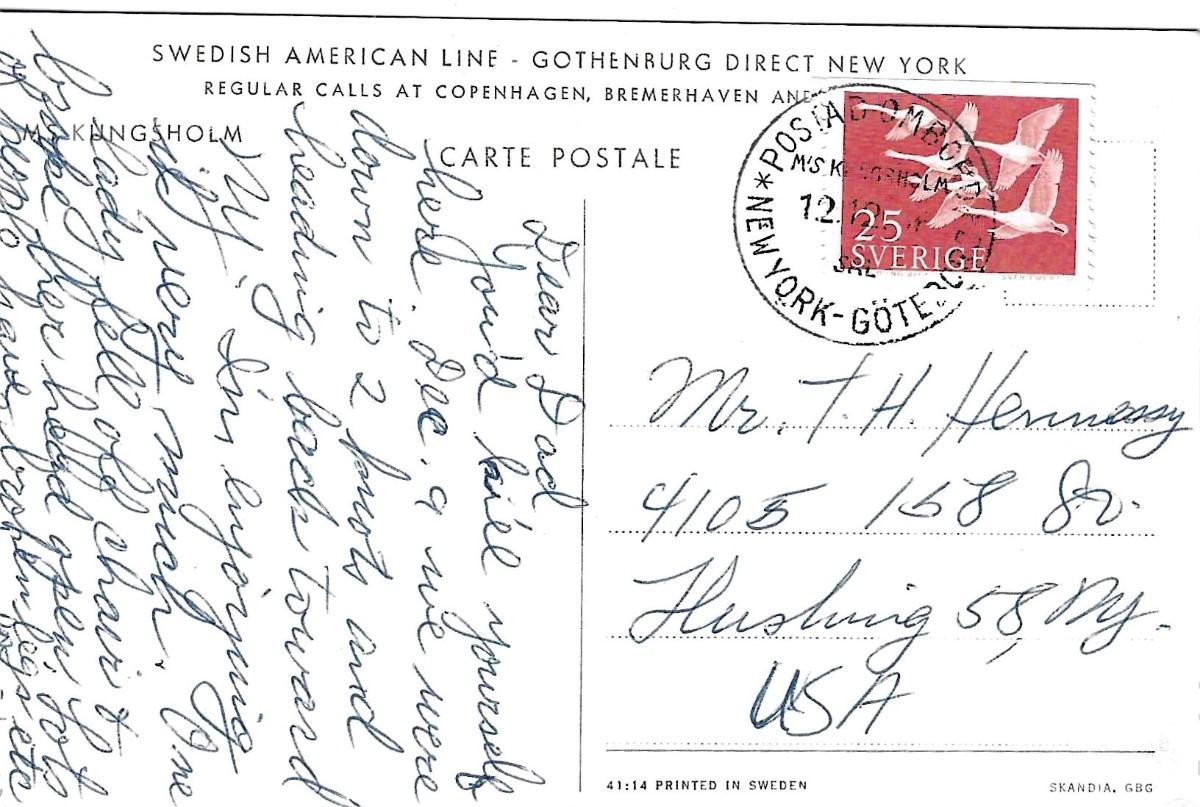 SWEDISH AMERICAN LINE - GOTHENBURG DIRECT NEW YORK
REGULAR CALLS AT COPENHAGEN, BREMERHAVEN AND
MS KUNGSHOLM
CARTE POSTALE
POSTAD OMBORD
M/S KUNGSHOLM
12.12
SAL
NEW YORK-GÖTEBORG
25
SVERIGE
Dear Dad
You'd kill yourself
here. Dec. 9 we were
down to 2 ports and
heading back toward
NY. I'm enjoying
it very much. One
lady fell off chair &
broke her head open, lots
of people have broken legs etc
Mr. T. H. Hennessy
4105 158 St.
Flushing 58, NY.
USA
41:14 PRINTED IN SWEDEN
SKANDIA, GBG